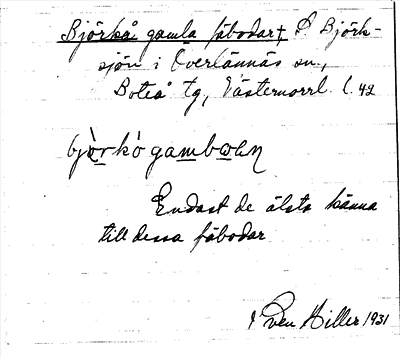 Björkå gamla fäbodar†, S Björk-
sjön i Överlännäs sn.,
Boteå tg, Västernorrl. l. 42
Endast de älsta känna
till dessa fäbodar
Sven Hiller 1931